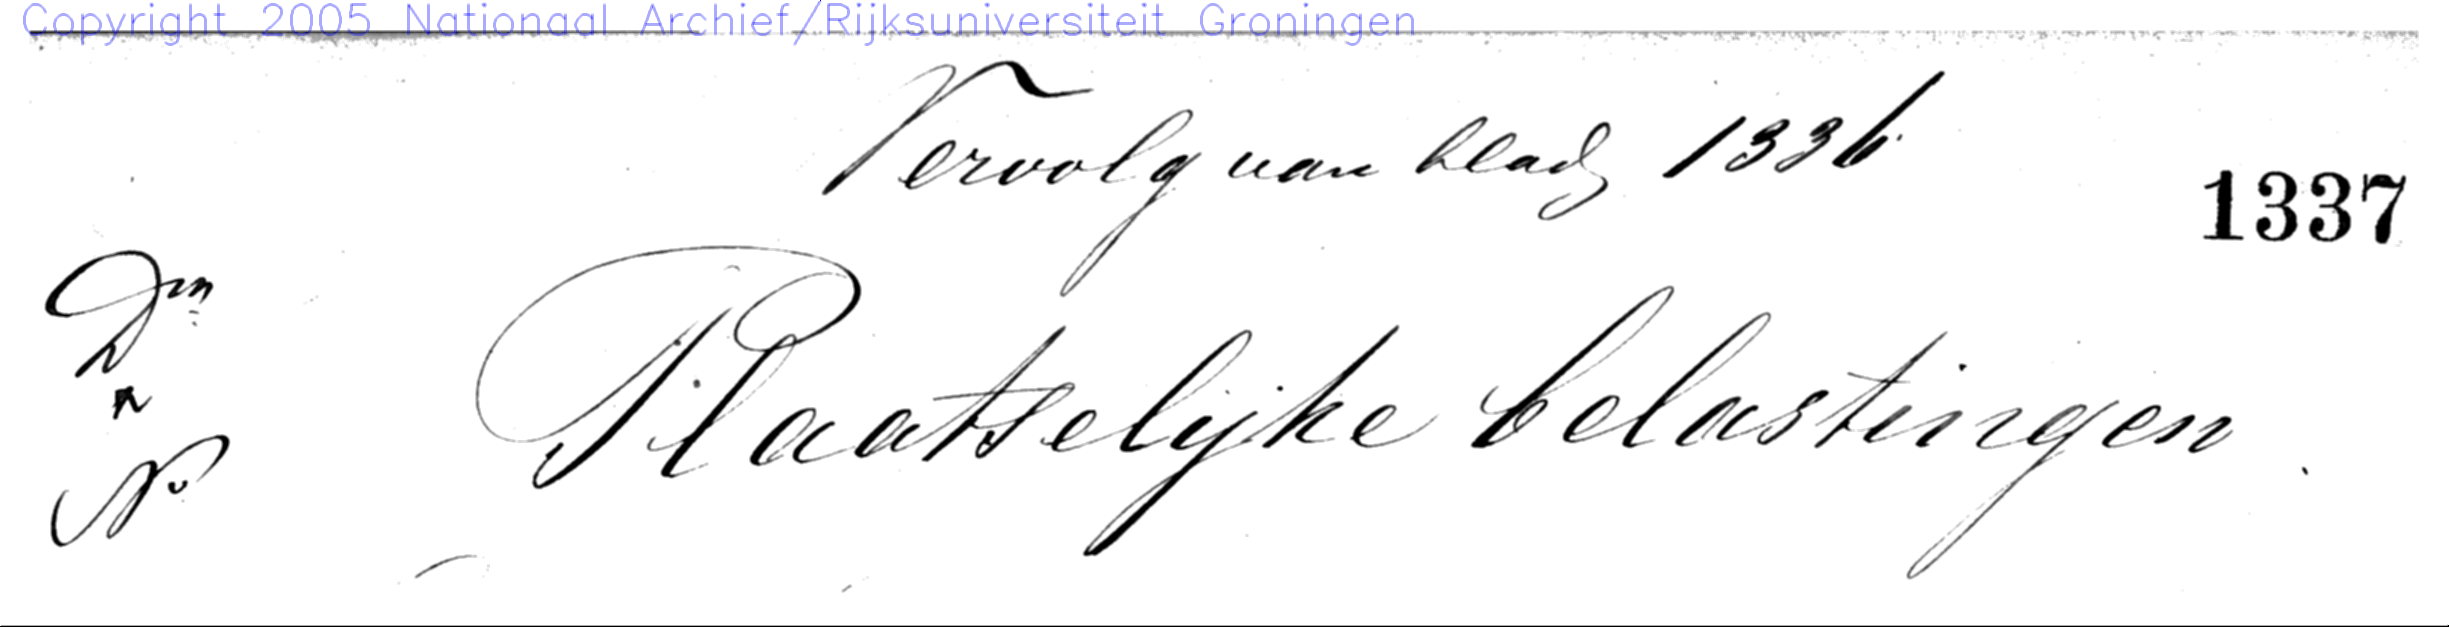 Copyright 2005 Nationaal Archief/Rijksuniversiteit Groningen
Vervolg van bladz 1336
1337
Dm
en
No
Plaatselijke belastingen.